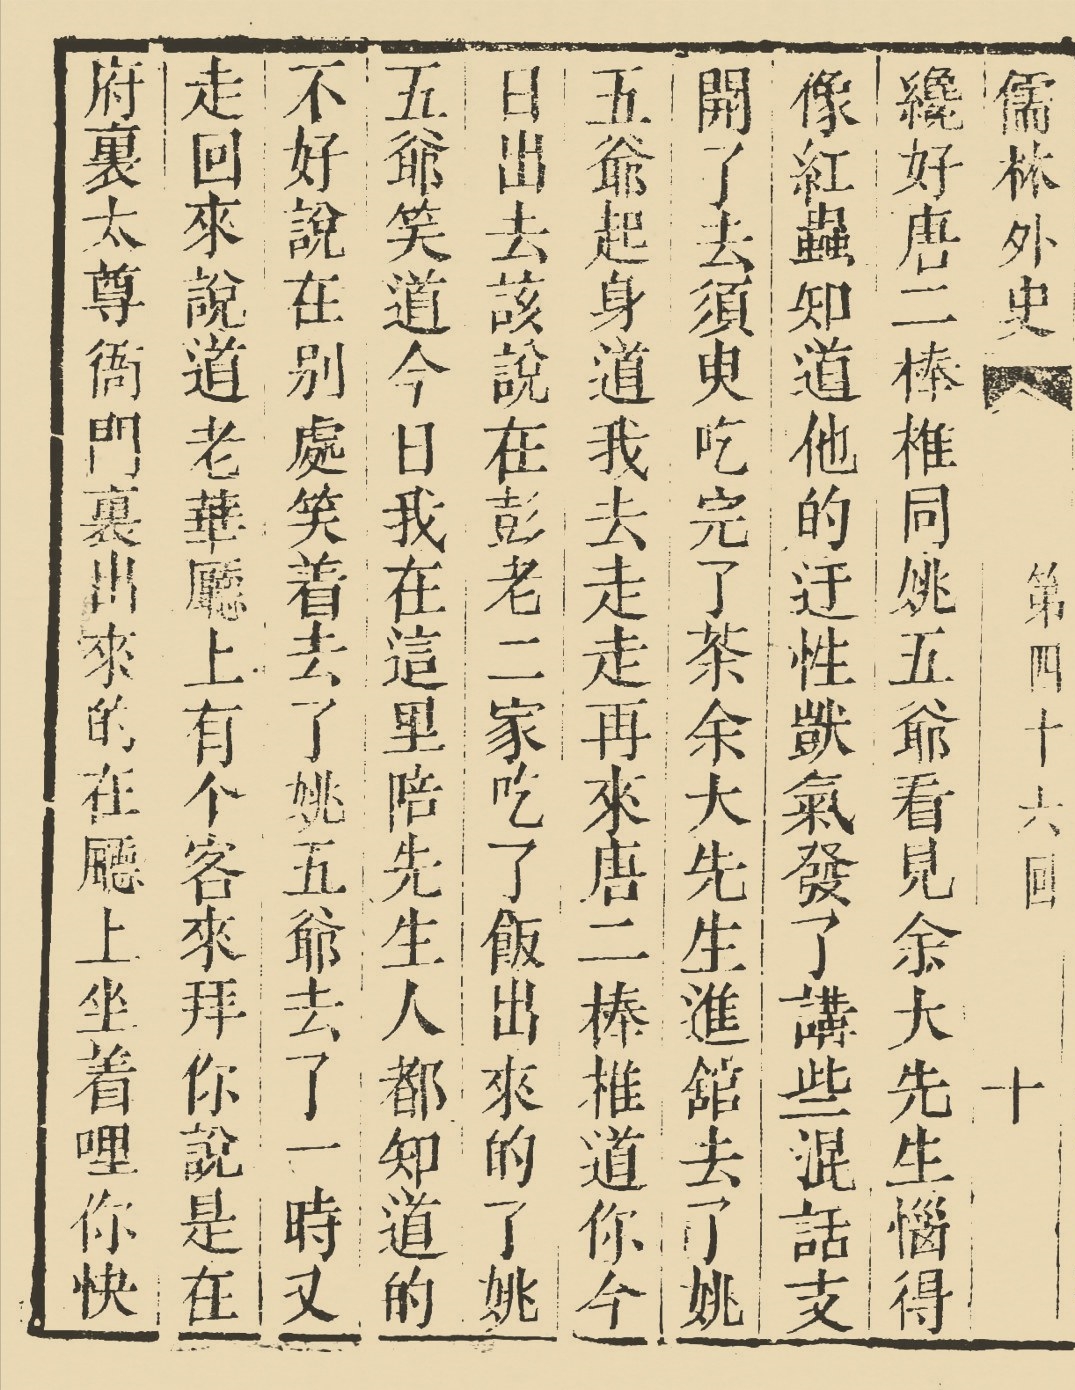 儒林外史 第四十六回 十
纔好唐二棒椎同姚五爺看見余大先生惱得
像紅蟲知道他的迂性獃氣發了講些混話支
開了去須臾吃完了茶余大先生進舘去了姚
五爺起身道我去走走再來唐二棒椎道你今
日出去該說在彭老二家吃了飯出來的了姚
五爺笑道今日我在這里陪先生人都知道的
不好說在别處笑着去了姚五爺去了一時又
走回來說道老華廳上有个客來拜你說是在
府裏太尊衙門裏出來的在廳上坐着哩你快